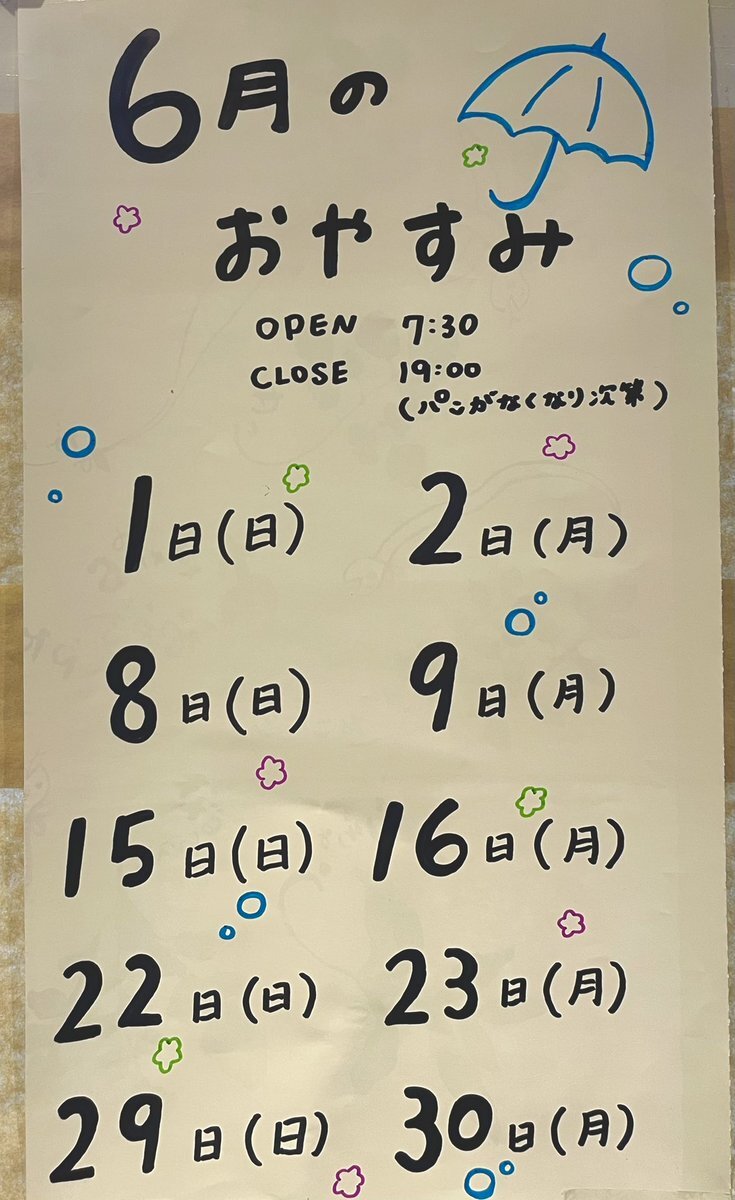 6月の
おやすみ
OPEN 7:30
CLOSE 19:00
(パンがなくなり次第)
1日(日) 2日(月)
8日(日) 9日(月)
15日(日) 16日(月)
22日(日) 23日(月)
29日(日) 30日(月)